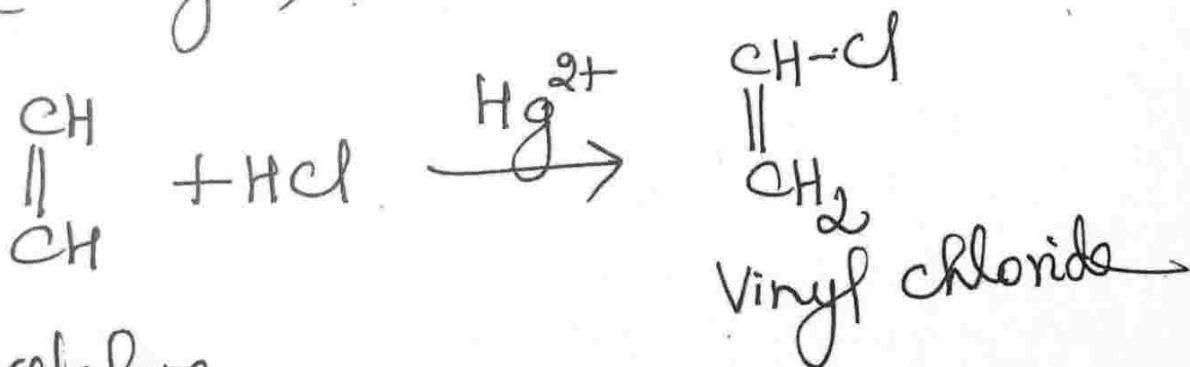 CH
||
CH
+HCl
Hg2+
CH-Cl
||
CH2
Vinyl chloride